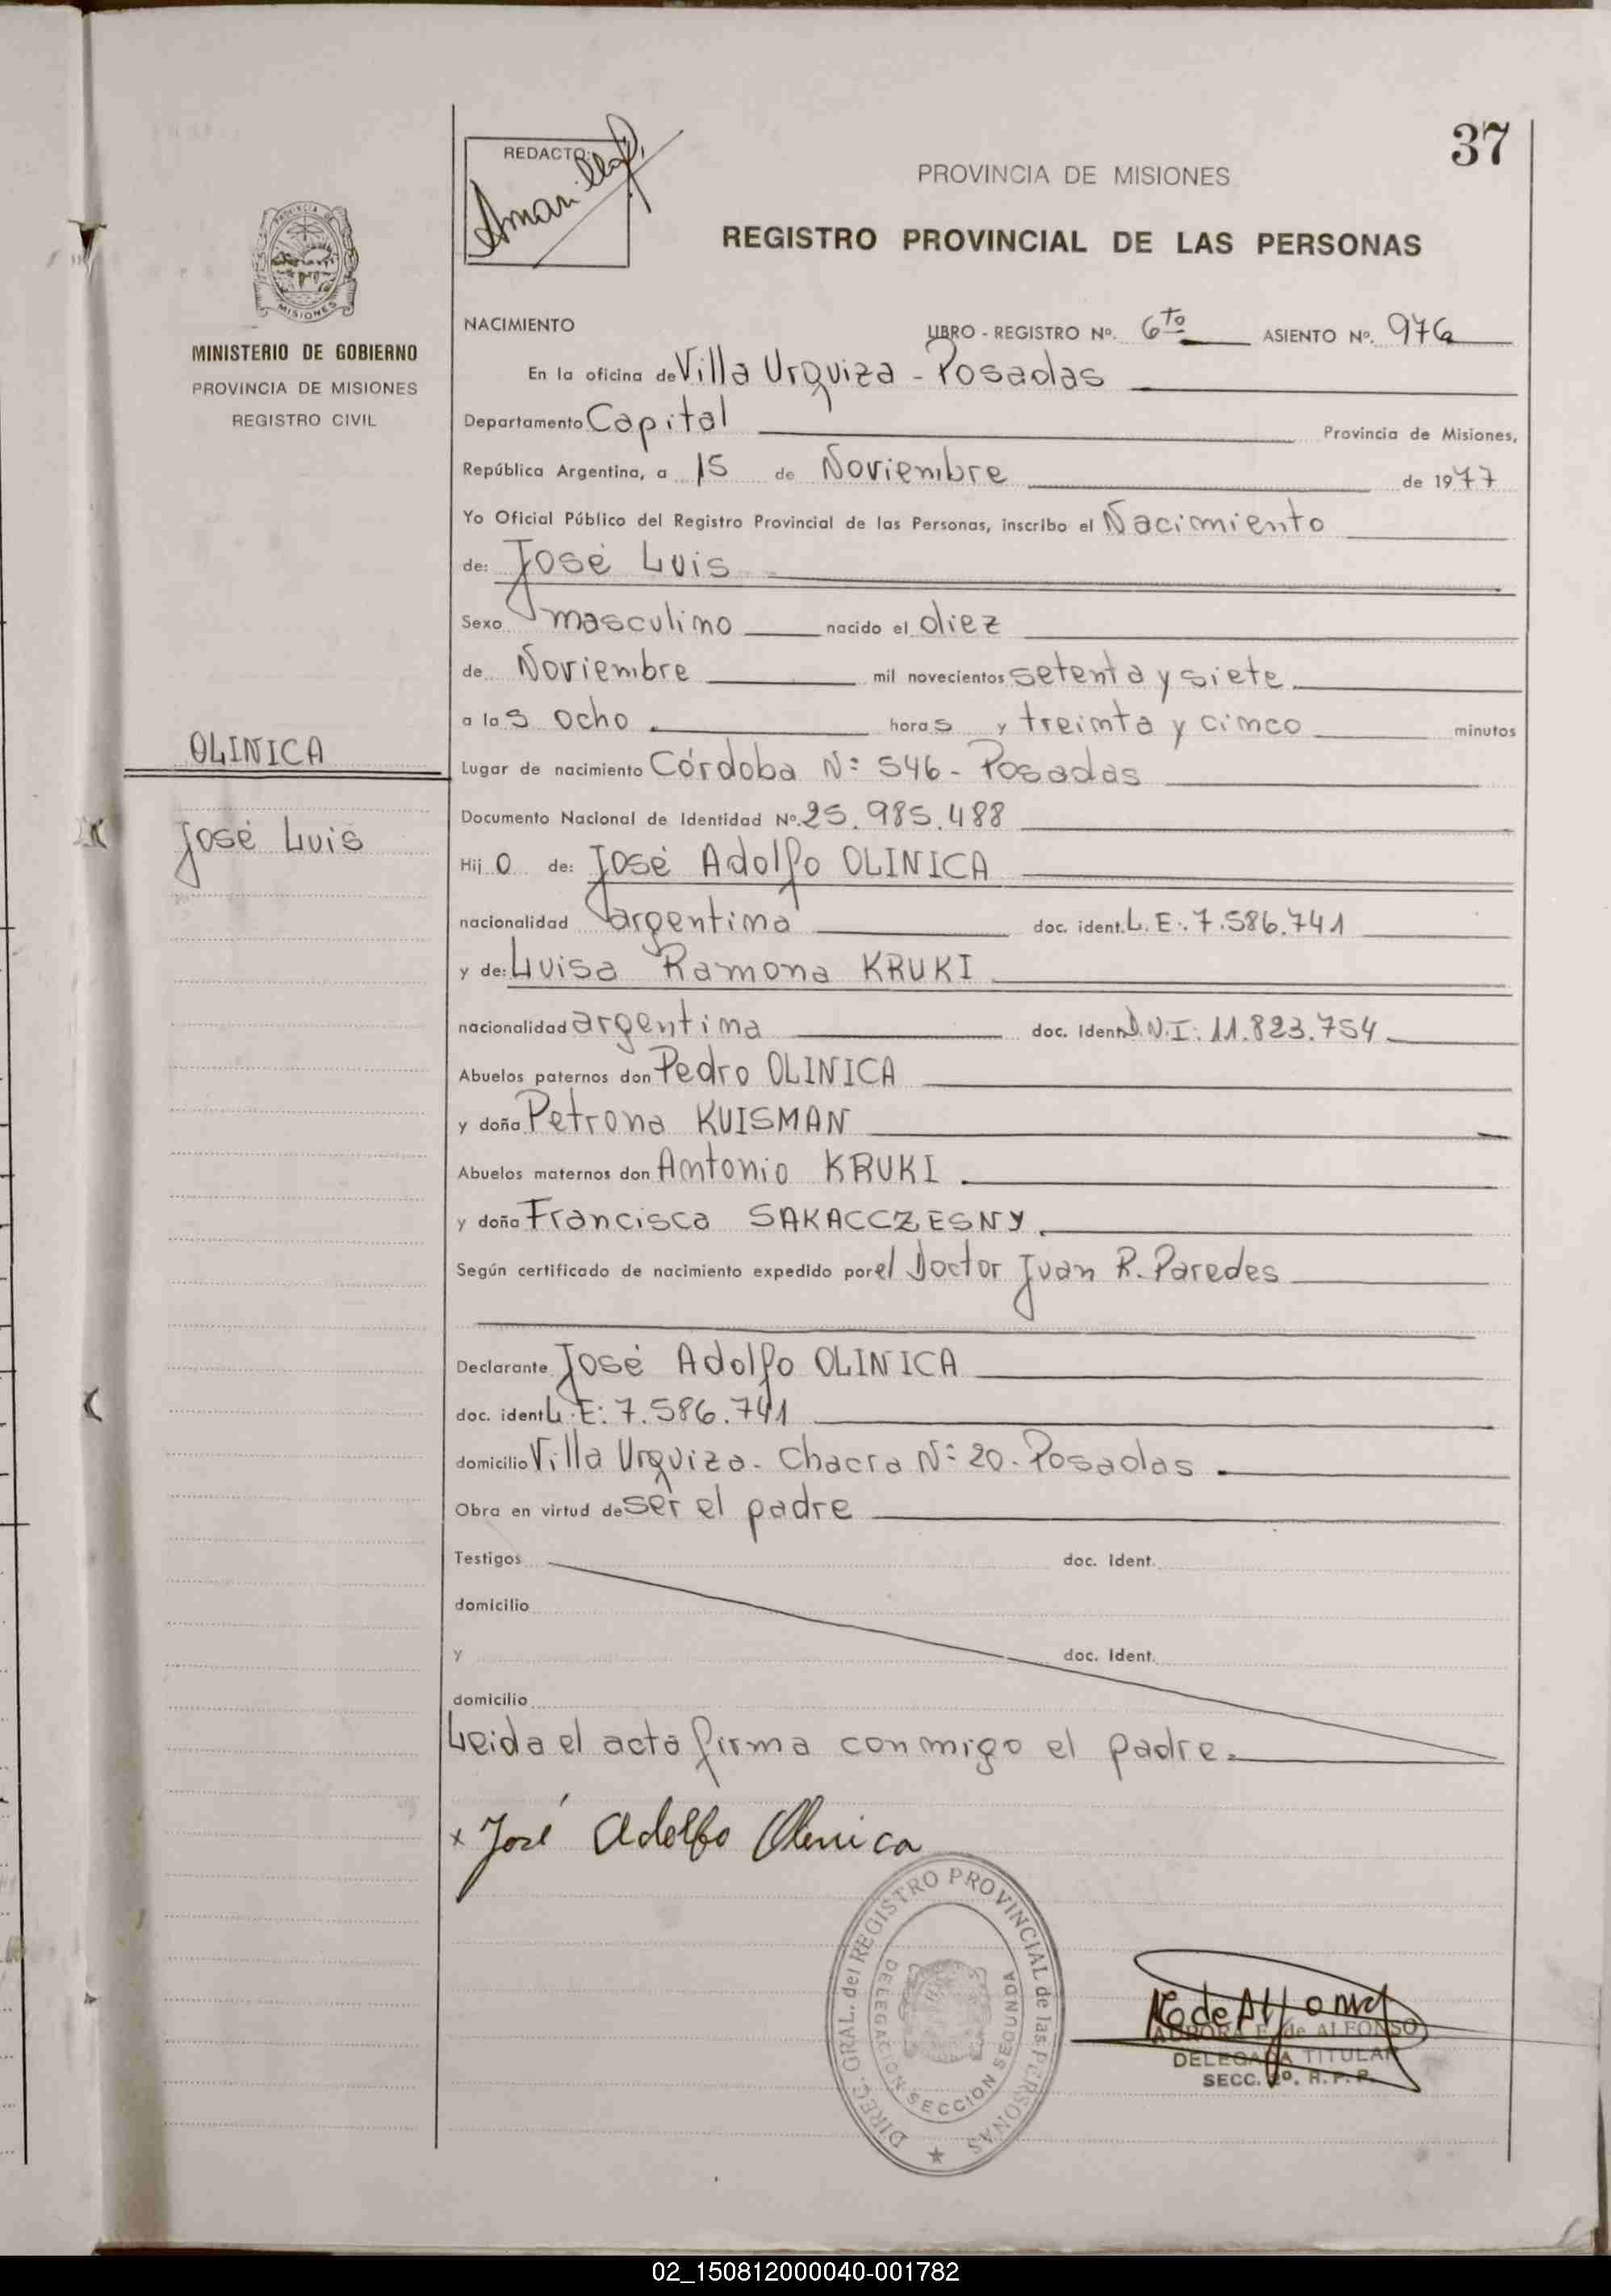 37
REDACTO:
PROVINCIA DE MISIONES
REGISTRO PROVINCIAL DE LAS PERSONAS
PROVINCIA DE MISIONES
MINISTERIO DE GOBIERNO
PROVINCIA DE MISIONES
REGISTRO CIVIL
NACIMIENTO LIBRO - REGISTRO Nº. 6to ASIENTO Nº. 976
En la oficina de Villa Urquiza - Posadas
Departamento Capital Provincia de Misiones,
República Argentina, a 15 de Noviembre de 1977
Yo Oficial Público del Registro Provincial de las Personas, inscribo el Nacimiento
de: José Luis
Sexo masculino nacido el diez
de Noviembre mil novecientos setenta y siete
a las ocho horas y treinta y cinco minutos
OLINICA
José Luis
Lugar de nacimiento Córdoba Nº 546 - Posadas
Documento Nacional de Identidad Nº. 25.985.488
Hijo de: José Adolfo OLINICA
nacionalidad argentina doc. ident. L.E: 7.586.741
y de: Luisa Ramona KRUKI
nacionalidad argentina doc. Ident. D.N.I: 11.823.754
Abuelos paternos don Pedro OLINICA
y doña Petrona KUISMAN
Abuelos maternos don Antonio KRUKI
y doña Francisca SAKACCZESNY
Según certificado de nacimiento expedido por el Doctor Juan R. Paredes
Declarante José Adolfo OLINICA
doc. ident L.E: 7.586.741
domicilio Villa Urquiza - Chacra Nº 20 - Posadas
Obra en virtud de ser el padre
Testigos doc. Ident.
domicilio
y doc. Ident.
domicilio
Leida el acta firma conmigo el padre.
x José Adolfo Olinica
DIREC. GRAL. del REGISTRO PROVINCIAL de las PERSONAS
DELEGACION SECCION SEGUNDA
AURORA E. de ALFONSO
DELEGADA TITULAR
SECC. 2º. R. P. P.
02_150812000040-001782